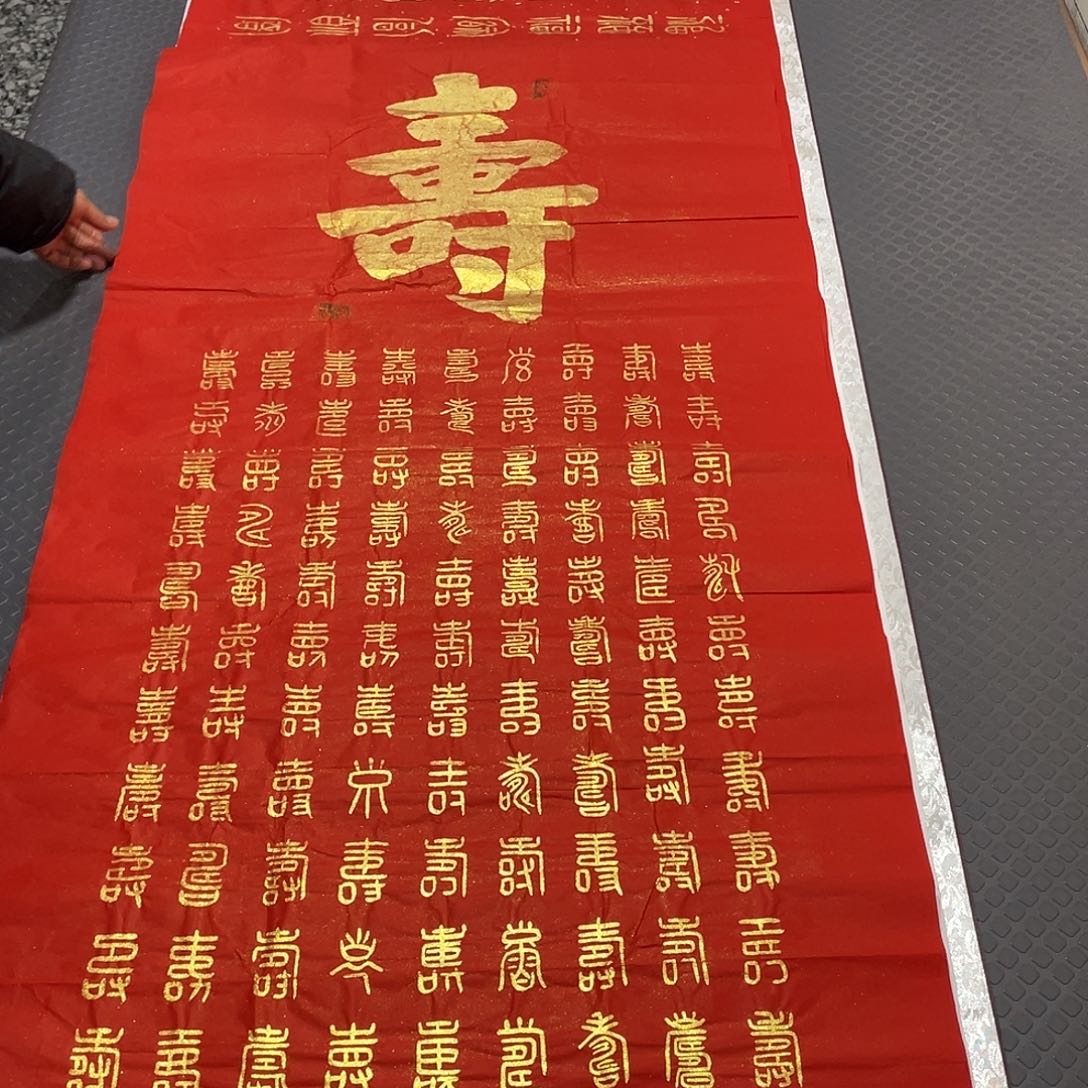 壽
壽壽壽壽壽壽壽壽壽
壽壽壽壽壽壽壽壽壽
壽壽壽壽壽壽壽壽壽
壽壽壽壽壽壽壽壽壽
壽壽壽壽壽壽壽壽壽
壽壽壽壽壽壽壽壽壽
壽壽壽壽壽壽壽壽壽
壽壽壽壽壽壽壽壽壽
壽壽壽壽壽壽壽壽壽
壽壽壽壽壽壽壽壽壽
壽壽壽壽壽壽壽壽壽